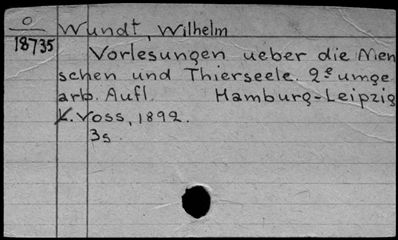 O
18735
Wundt, Wilhelm
Vorlesungen ueber die Men
schen und Thierseele. 2e umge
arb. Aufl. Hamburg-Leipzig
L. Voss, 1892.
3s